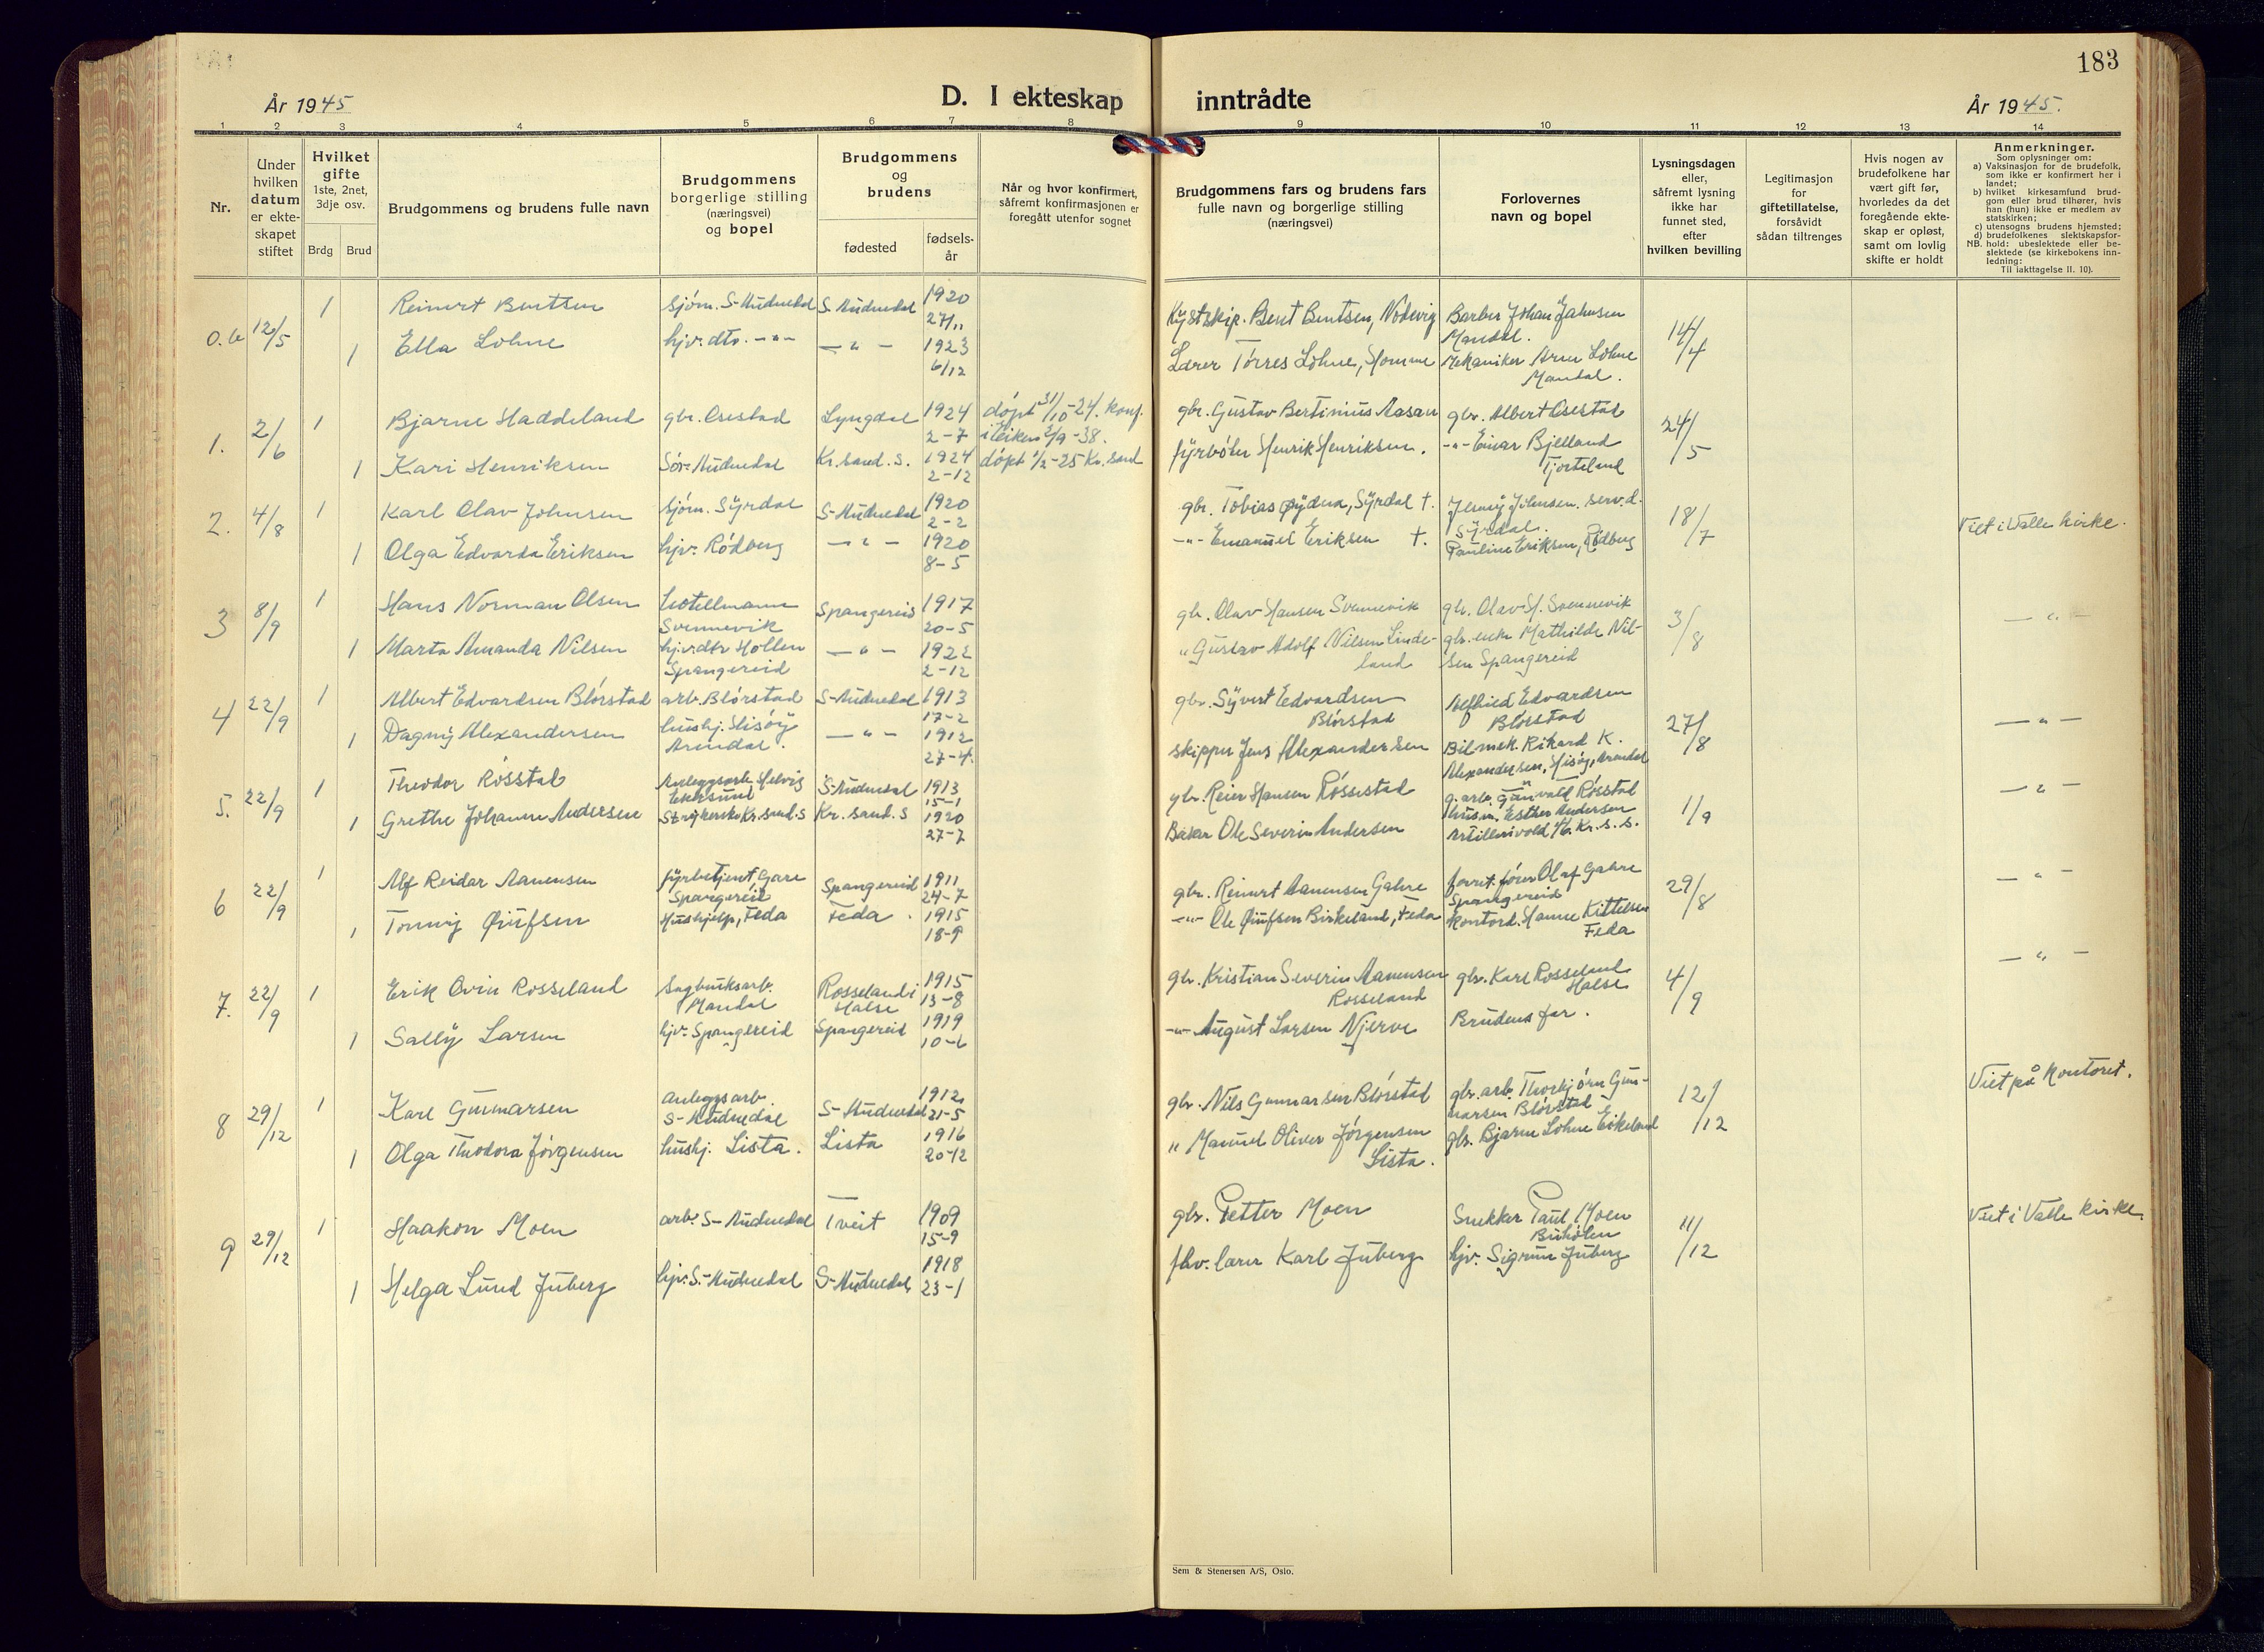 183
År 1945
D. I ekteskap inntrådte
År 1945.
1 2 3 4 5 6 7 8 9 10 11 12 13 14
Nr.
Under hvilken datum er ekteskapet stiftet
Hvilket gifte
1ste, 2net, 3dje osv.
Brdg Brud
Brudgommens og brudens fulle navn
Brudgommens borgerlige stilling (næringsvei) og bopel
Brudgommens og brudens
fødested
fødselsår
Når og hvor konfirmert, såfremt konfirmasjonen er foregått utenfor sognet
Brudgommens fars og brudens fars fulle navn og borgerlige stilling (næringsvei)
Forlovernes navn og bopel
Lysningsdagen eller, såfremt lysning ikke har funnet sted, efter hvilken bevilling
Legitimasjon for giftetillatelse, forsåvidt sådan tiltrenges
Hvis nogen av brudefolkene har vært gift før, hvorledes da det foregående ekteskap er opløst, samt om lovlig skifte er holdt
Anmerkninger.
Som oplysninger om:
a) Vaksinasjon for de brudefolk, som ikke er konfirmert her i landet;
b) hvilket kirkesamfund brudgom eller brud tilhører, hvis han (hun) ikke er medlem av statskirken;
c) utensogns brudens hjemsted;
d) brudefolkenes slektskapsforhold: ubeslektede eller beslektede (se kirkebokens innledning:
NB. Til iakttagelse II. 10).
12/5 1 Reinert Bentsen sjøm. S-Audnedal S-Audnedal 1920 27/11 Kystskip. Bent Bentsen, Barber Johan Jahnsen Mandal. 14/4
1 Ella Løhne hjv. dto. -"- - " - 1923 6/12 Lærer Tørres Løhne, Homme Mekaniker Arne Løhne Mandal.
1. 2/6 1 Bjarne Haddeland gbr. Osestad Lyngdal 1924 2-7 døpt 31/10-24. konf. i Eiken 2/9-38. gbr. Gustav Bertinius Aasan gbr. Albert Osestad 24/5
1 Kari Henriksen Sør-Audnedal Kr.sand.S. 1924 2-12 døpt 1/2-25 Kr.sand fyrbøter Henrik Henriksen. -"- Einar Bjelland Tjorteland
2. 4/8 1 Karl Olav Johnsen sjøm. Syrdal S-Audnedal 1920 2-2 gbr. Tobias Øydna, Syrdal †. Jenny Johnsen. serv.d. Syrdal. 18/7 Viet i Valle kirke.
1 Olga Edvarda Eriksen hjv. Rødberg - " - 1920 8-5 -"- Emanuel Eriksen †. Pauline Eriksen, Rødberg
3 8/9 1 Hans Norman Olsen hotellmann Svennevik Spangereid 1917 20-5 gbr. Olav Hansen Svennevik gbr. Olav H. Svennevik 3/8 - " -
1 Marta Amanda Nilsen hjv. dtr Hollen Spangereid - " - 1922 2-12 " Gustav Adolf Nilsen Lindeland gbr. enke Mathilde Nilsen Spangereid
4 22/9 1 Albert Edvardsen Blørstad arb. Blørstad S-Audnedal 1913 17-2 gbr. Syvert Edvardsen Blørstad Alfhild Edvardsen Blørstad 27/8 - " -
1 Dagny Alexandersen hushj. Hisøy Arendal. - " - 1912 27-4. skipper Jens Alexandersen Bilmek. Rikard K. Alexandersen, Hisøy, Arendal
5. 22/9 1 Theodor Røsstad Anleggsarb. Eikesund S-Audnedal 1913 15-1 gbr. Reier Hansen Røssestad g. arb. Gunvald Røsstad 1/9 - " -
1 Grethe Johanne Andersen Strykerske Kr.sand.S Kr.sand.S 1920 27-7 Baker Ole Severin Andersen husm. Esther Andersen Artillerivold. Kr.s.S.
6 22/9 1 Alf Reidar Aanensen fyrbetjent Gare Spangereid Spangereid 1911 24-7 gbr. Reinert Aanensen Gahre forret.fører Olaf Gahre Spangereid 29/8 - " -
1 Tonny Øiufsen Hushjelp, Feda Feda. 1915 18-9 -"- Ole Øiufsen Birkeland, Feda Kontord. Hanne Kittelsen Feda
7. 22/9 1 Erik Ovin Rosseland Sagbruksarb. Mandal Rosseland i Halse 1915 13-8 gbr. Kristian Severin Aanensen Rosseland gbr. Karl Rosseland Halse 4/9 - " -
1 Sally Larsen hjv. Spangereid Spangereid 1919 10-6 -"- August Larsen Njerve Brudens far.
8 29/12 1 Karl Gunnarsen anleggsarb. S-Audnedal S-Audnedal 1912 21-5 gbr. Nils Gunnarsen Blørstad gbr. arb. Thorbjørn Gunnarsen Blørstad 12/12 Viet på kontoret.
1 Olga Theodora Jørgensen hushj. Lista. Lista 1916 20-12 " Manuel Oliver Jørgensen Lista. gbr. Bjarne Løhne Eikeland
9 29/12 1 Haakon Moen arb. S-Audnedal Tveit 1909 15-9 gbr. Petter Moen Snekker Paul Moen 11/12 Viet i Valle kirke.
1 Helga Lund Juberg hjv. S-Audnedal S-Audnedal 1918 23-1 fhv. lærer Karl Juberg hjv. Sigrun Juberg
Sem & Stenersen A/S, Oslo.